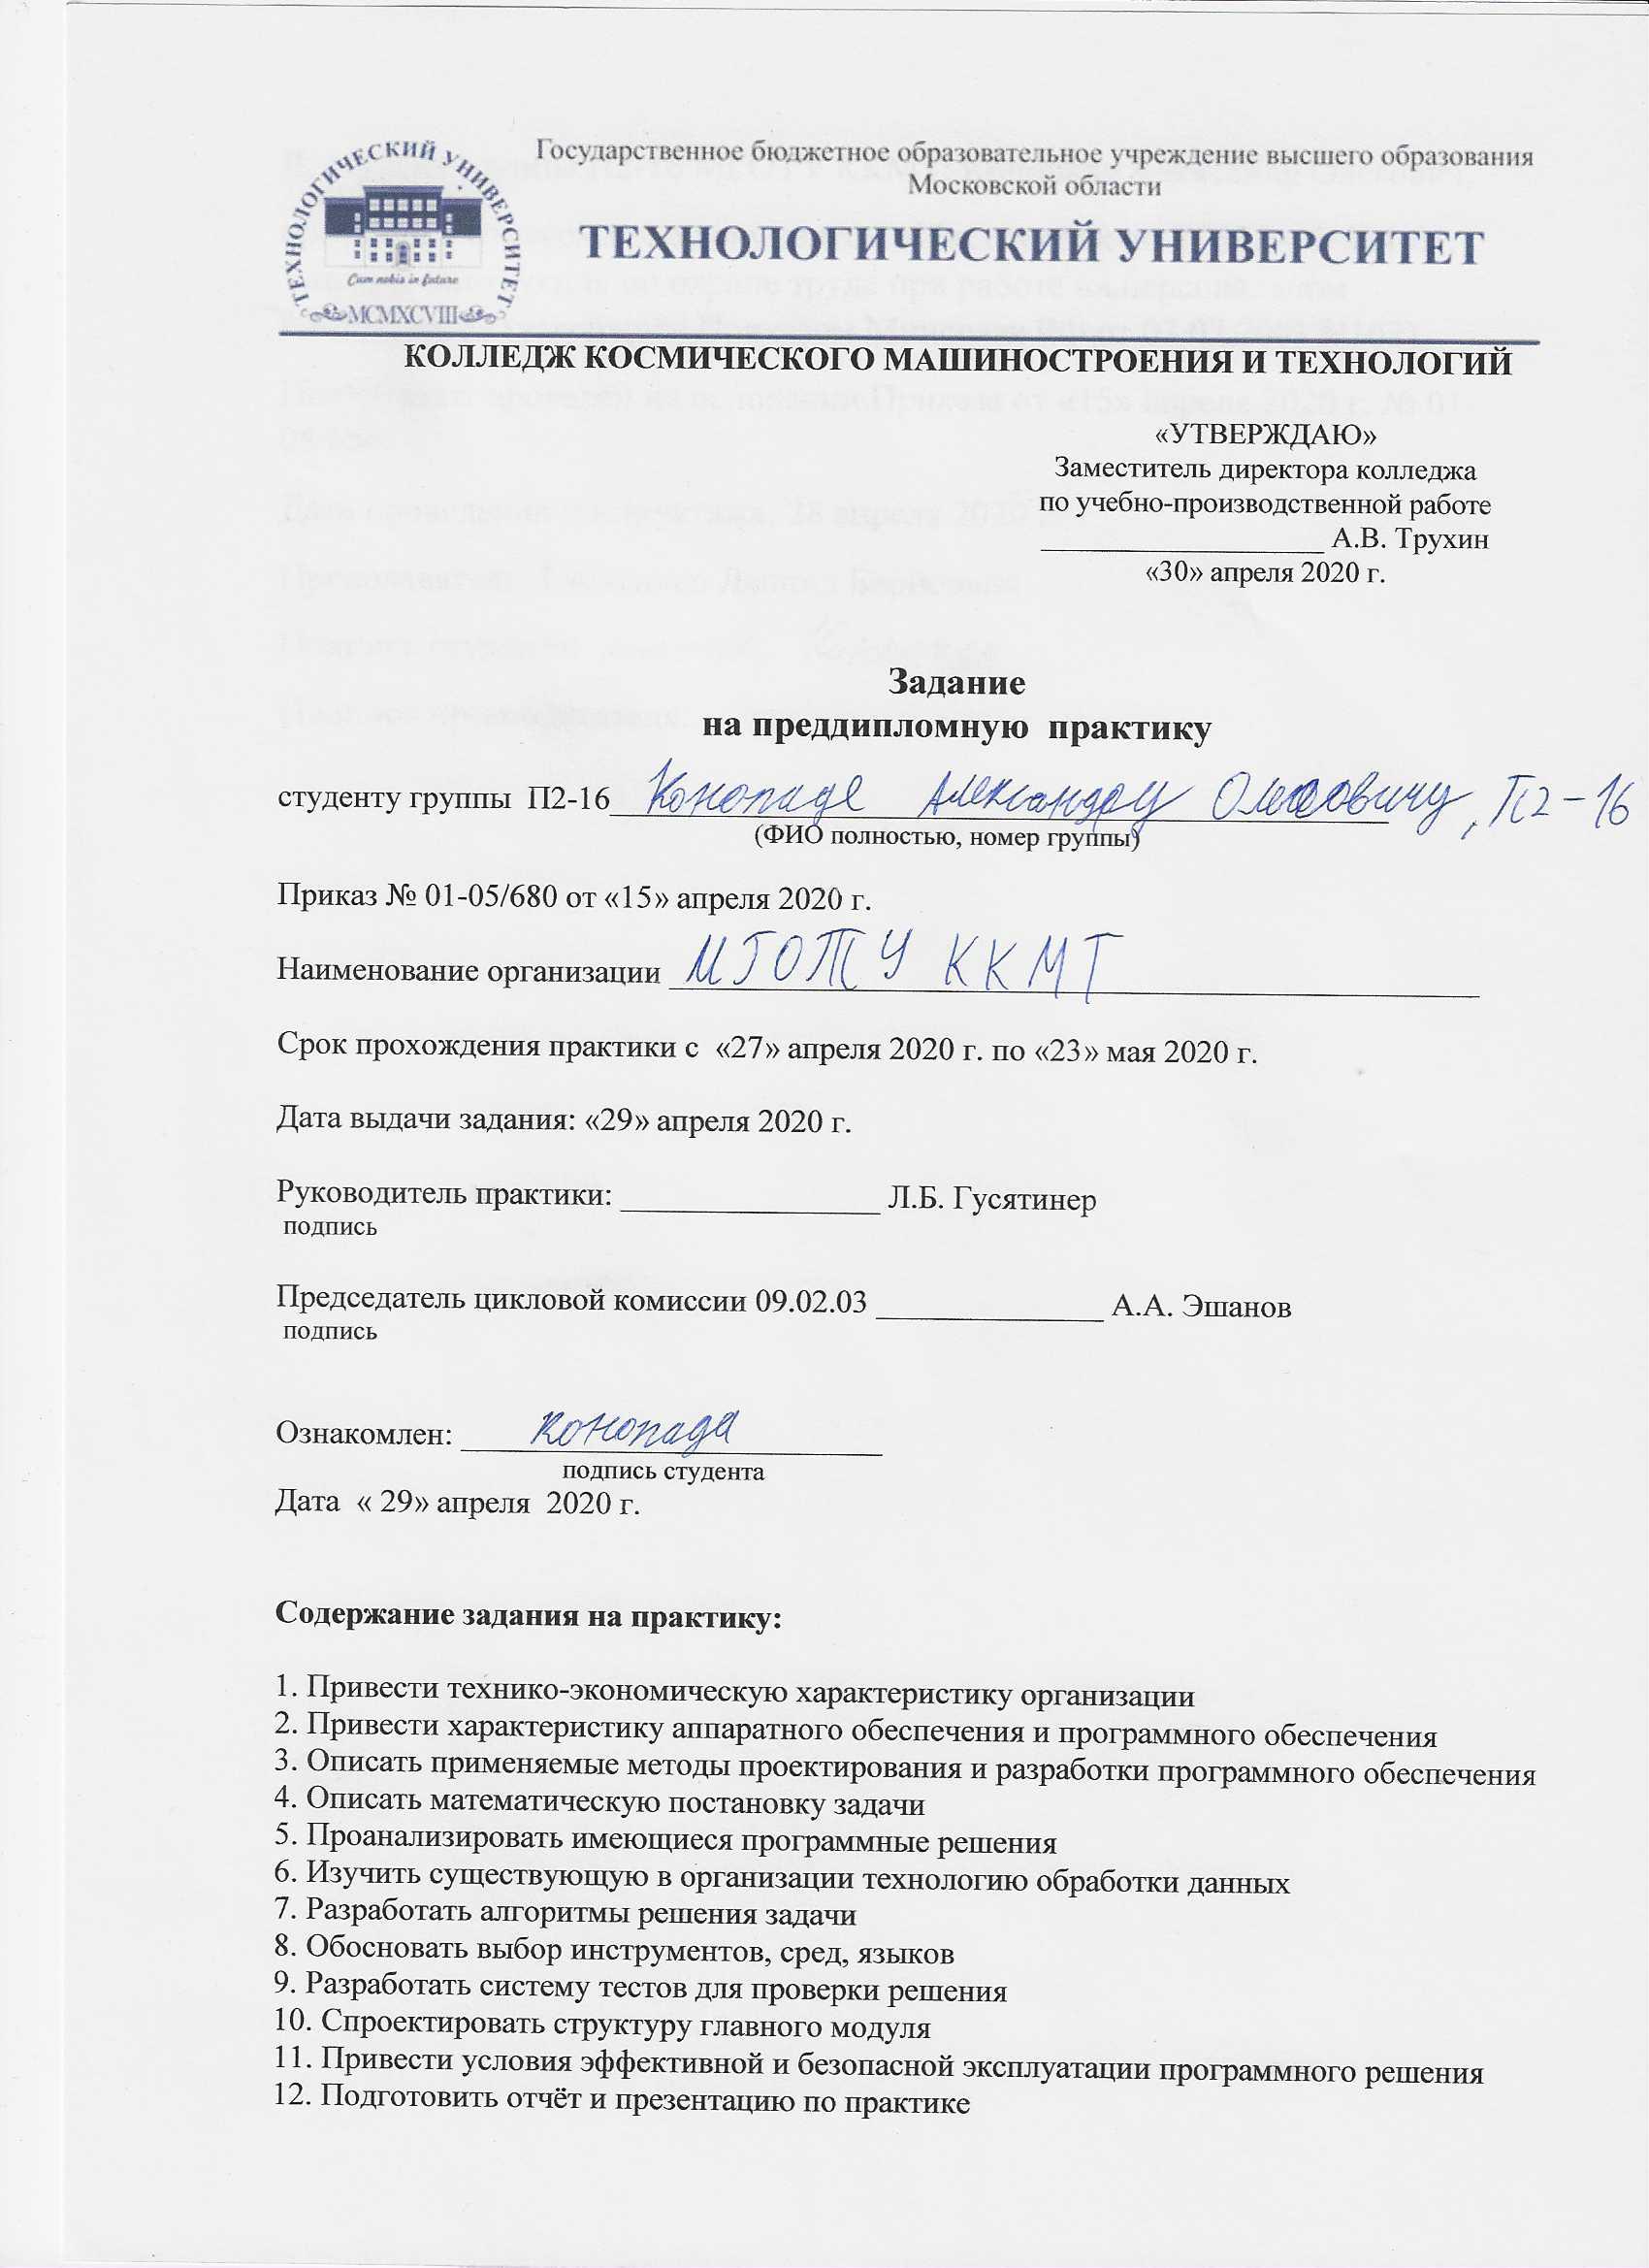 Государственное бюджетное образовательное учреждение высшего образования
Московской области
ТЕХНОЛОГИЧЕСКИЙ УНИВЕРСИТЕТ
ТЕХНОЛОГИЧЕСКИЙ УНИВЕРСИТЕТ
Cum nobis in future
MCMXCVIII
КОЛЛЕДЖ КОСМИЧЕСКОГО МАШИНОСТРОЕНИЯ И ТЕХНОЛОГИЙ
«УТВЕРЖДАЮ»
Заместитель директора колледжа
по учебно-производственной работе
__________________ А.В. Трухин
«30» апреля 2020 г.
Задание
на преддипломную практику
студенту группы П2-16 Конопаде Александру Олеговичу, П2-16
(ФИО полностью, номер группы)
Приказ № 01-05/680 от «15» апреля 2020 г.
Наименование организации МГОТУ ККМТ
Срок прохождения практики с «27» апреля 2020 г. по «23» мая 2020 г.
Дата выдачи задания: «29» апреля 2020 г.
Руководитель практики: ________________ Л.Б. Гусятинер
подпись
Председатель цикловой комиссии 09.02.03 ______________ А.А. Эшанов
подпись
Ознакомлен: Конопада
подпись студента
Дата « 29» апреля 2020 г.
Содержание задания на практику:
1. Привести технико-экономическую характеристику организации
2. Привести характеристику аппаратного обеспечения и программного обеспечения
3. Описать применяемые методы проектирования и разработки программного обеспечения
4. Описать математическую постановку задачи
5. Проанализировать имеющиеся программные решения
6. Изучить существующую в организации технологию обработки данных
7. Разработать алгоритмы решения задачи
8. Обосновать выбор инструментов, сред, языков
9. Разработать систему тестов для проверки решения
10. Спроектировать структуру главного модуля
11. Привести условия эффективной и безопасной эксплуатации программного решения
12. Подготовить отчёт и презентацию по практике